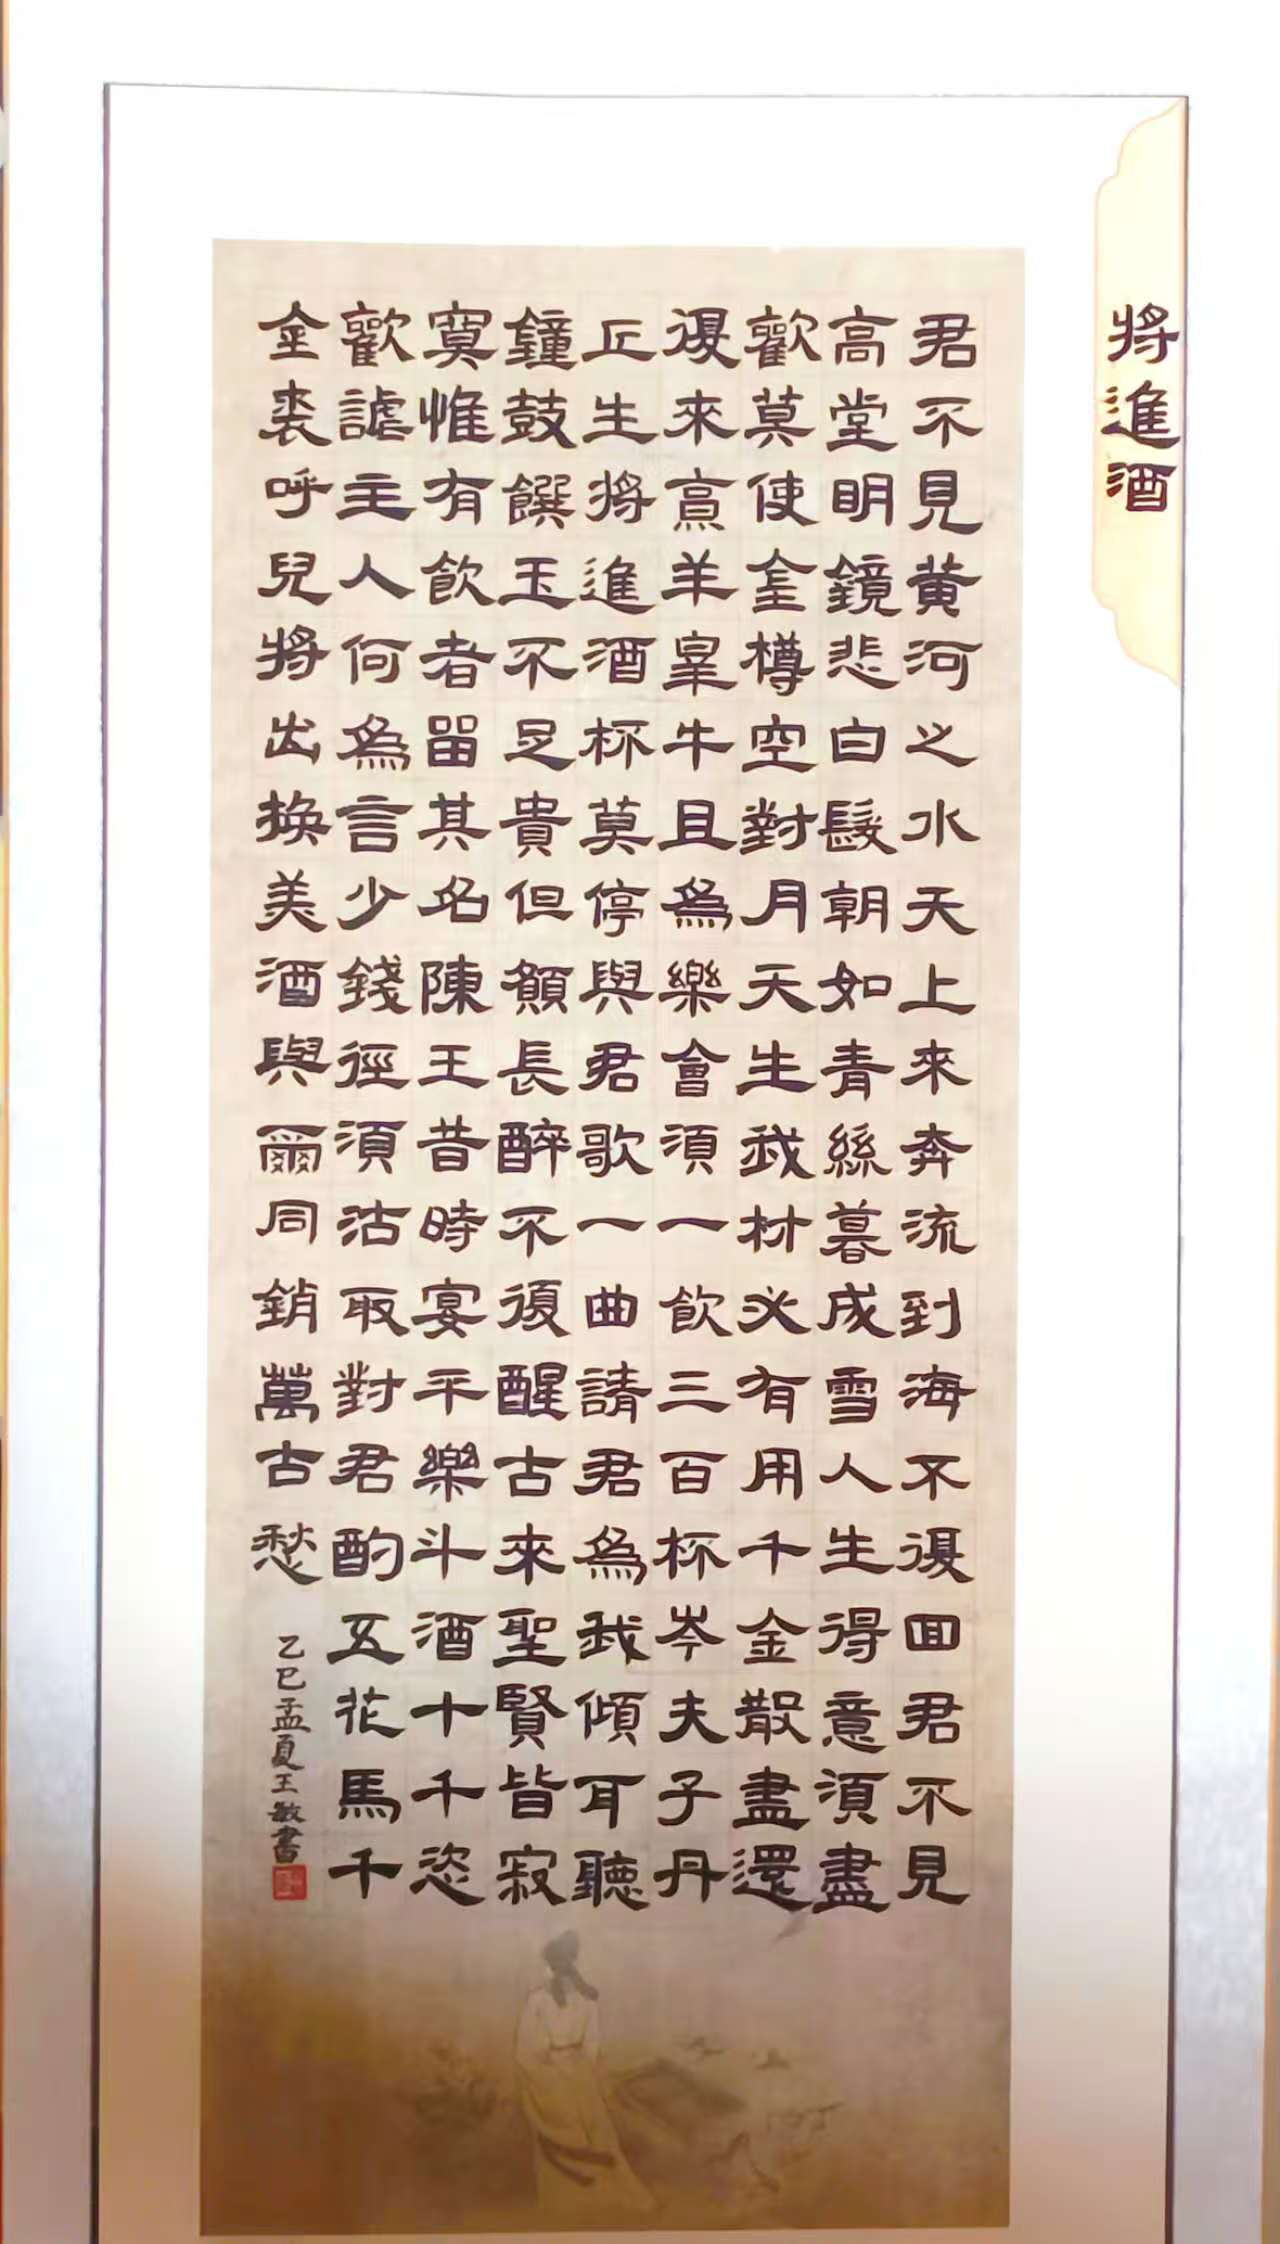 將進酒
君不見黄河之水天上來奔流到海不復回君不見
高堂明鏡悲白髮朝如青絲暮成雪人生得意須盡
歡莫使金樽空對月天生我材必有用千金散盡還
復來烹羊宰牛且為樂會須一飲三百杯岑夫子丹
丘生將進酒杯莫停與君歌一曲請君為我傾耳聽
鐘鼓饌玉不足貴但願長醉不復醒古來聖賢皆寂
寞惟有飲者留其名陳王昔時宴平樂斗酒十千恣
歡謔主人何為言少錢徑須沽取對君酌五花馬千
金裘呼兒將出換美酒與爾同銷萬古愁
乙巳孟夏王敏書